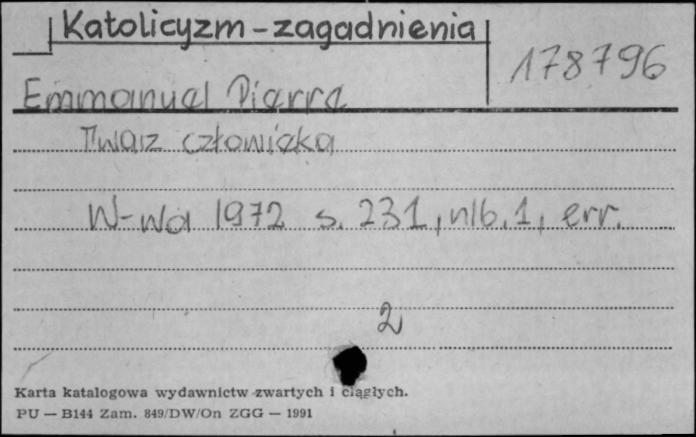 Katolicyzm - zagadnienia
178796
Emmanuel Pierre
Twarz człowieka
W-wa 1972 s. 231, nlb. 1, err.
2
Karta katalogowa wydawnictw zwartych i ciągłych.
PU — B144 Zam. 849/DW/On ZGG — 1991